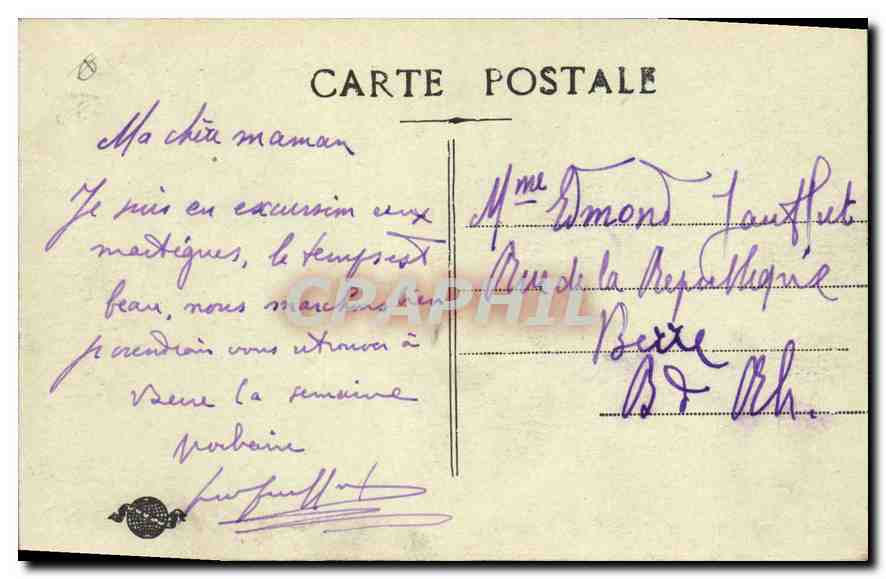 CARTE POSTALE
Ma chère maman
Je suis en excursion aux
martigues, le temps est
beau, nous marchons bien
viendrai vous retrouver à
Berre la semaine
prochaine
Mme Edmond Jauffret
Rue de la République
Berre
B d Rh.
CPAPHIL